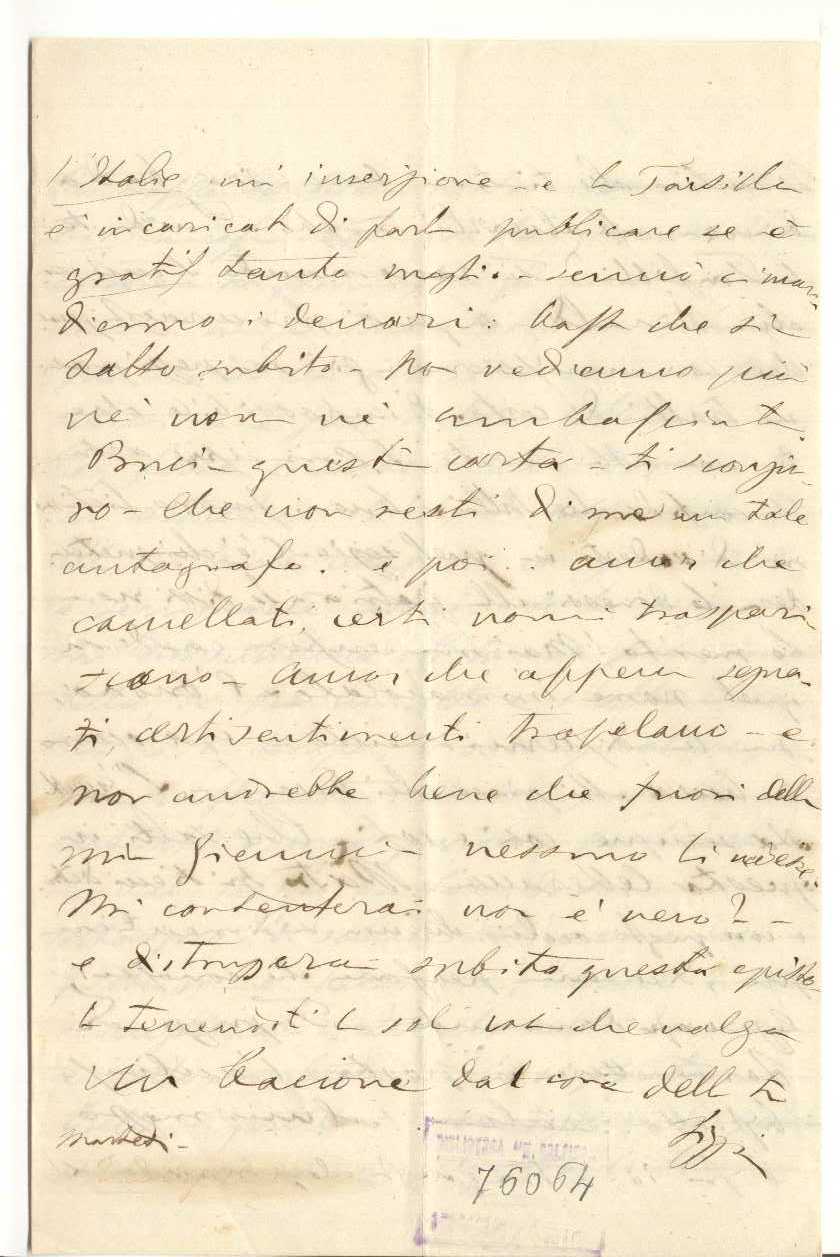 l'Italie un' inserzione - e la Tarsilla
è incaricata di farla publicare se è
gratis tanto meglio - sennò ci man-
diamo i denari: basta che sia
fatto subito - Non vediamo più
nè nova nè ambasciata
Brucia questa carta - ti scongiu-
ro - che non resti di me un tale
autografo. e poi.. ancor che
cancellati, certi nomi traspari-
scono - Ancor che appena segna-
ti, certi sentimenti trapelano - e
non andrebbe bene che fuori della
mia Giannina nessuno li vedesse
Mi contenterai non è vero? -
e distruggerai subito questa episto-
la tenendoti la sola cosa che valga
un bacione dal core della tua
martedì -
76064